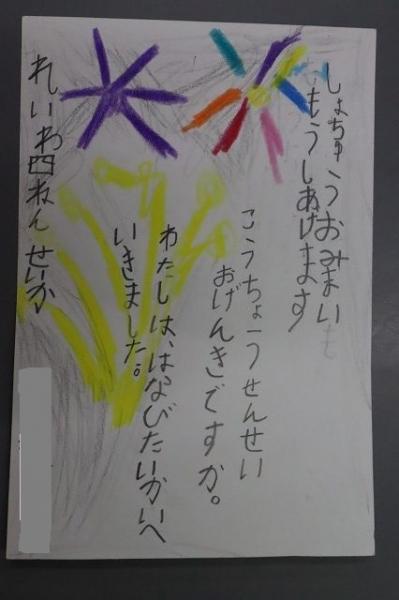 しょちゅうおみまい
もうしあげます
こうちょうせんせい
おげんきですか。
わたしは、はなびたいかいへ
いきました。
れいわ四ねん せいか